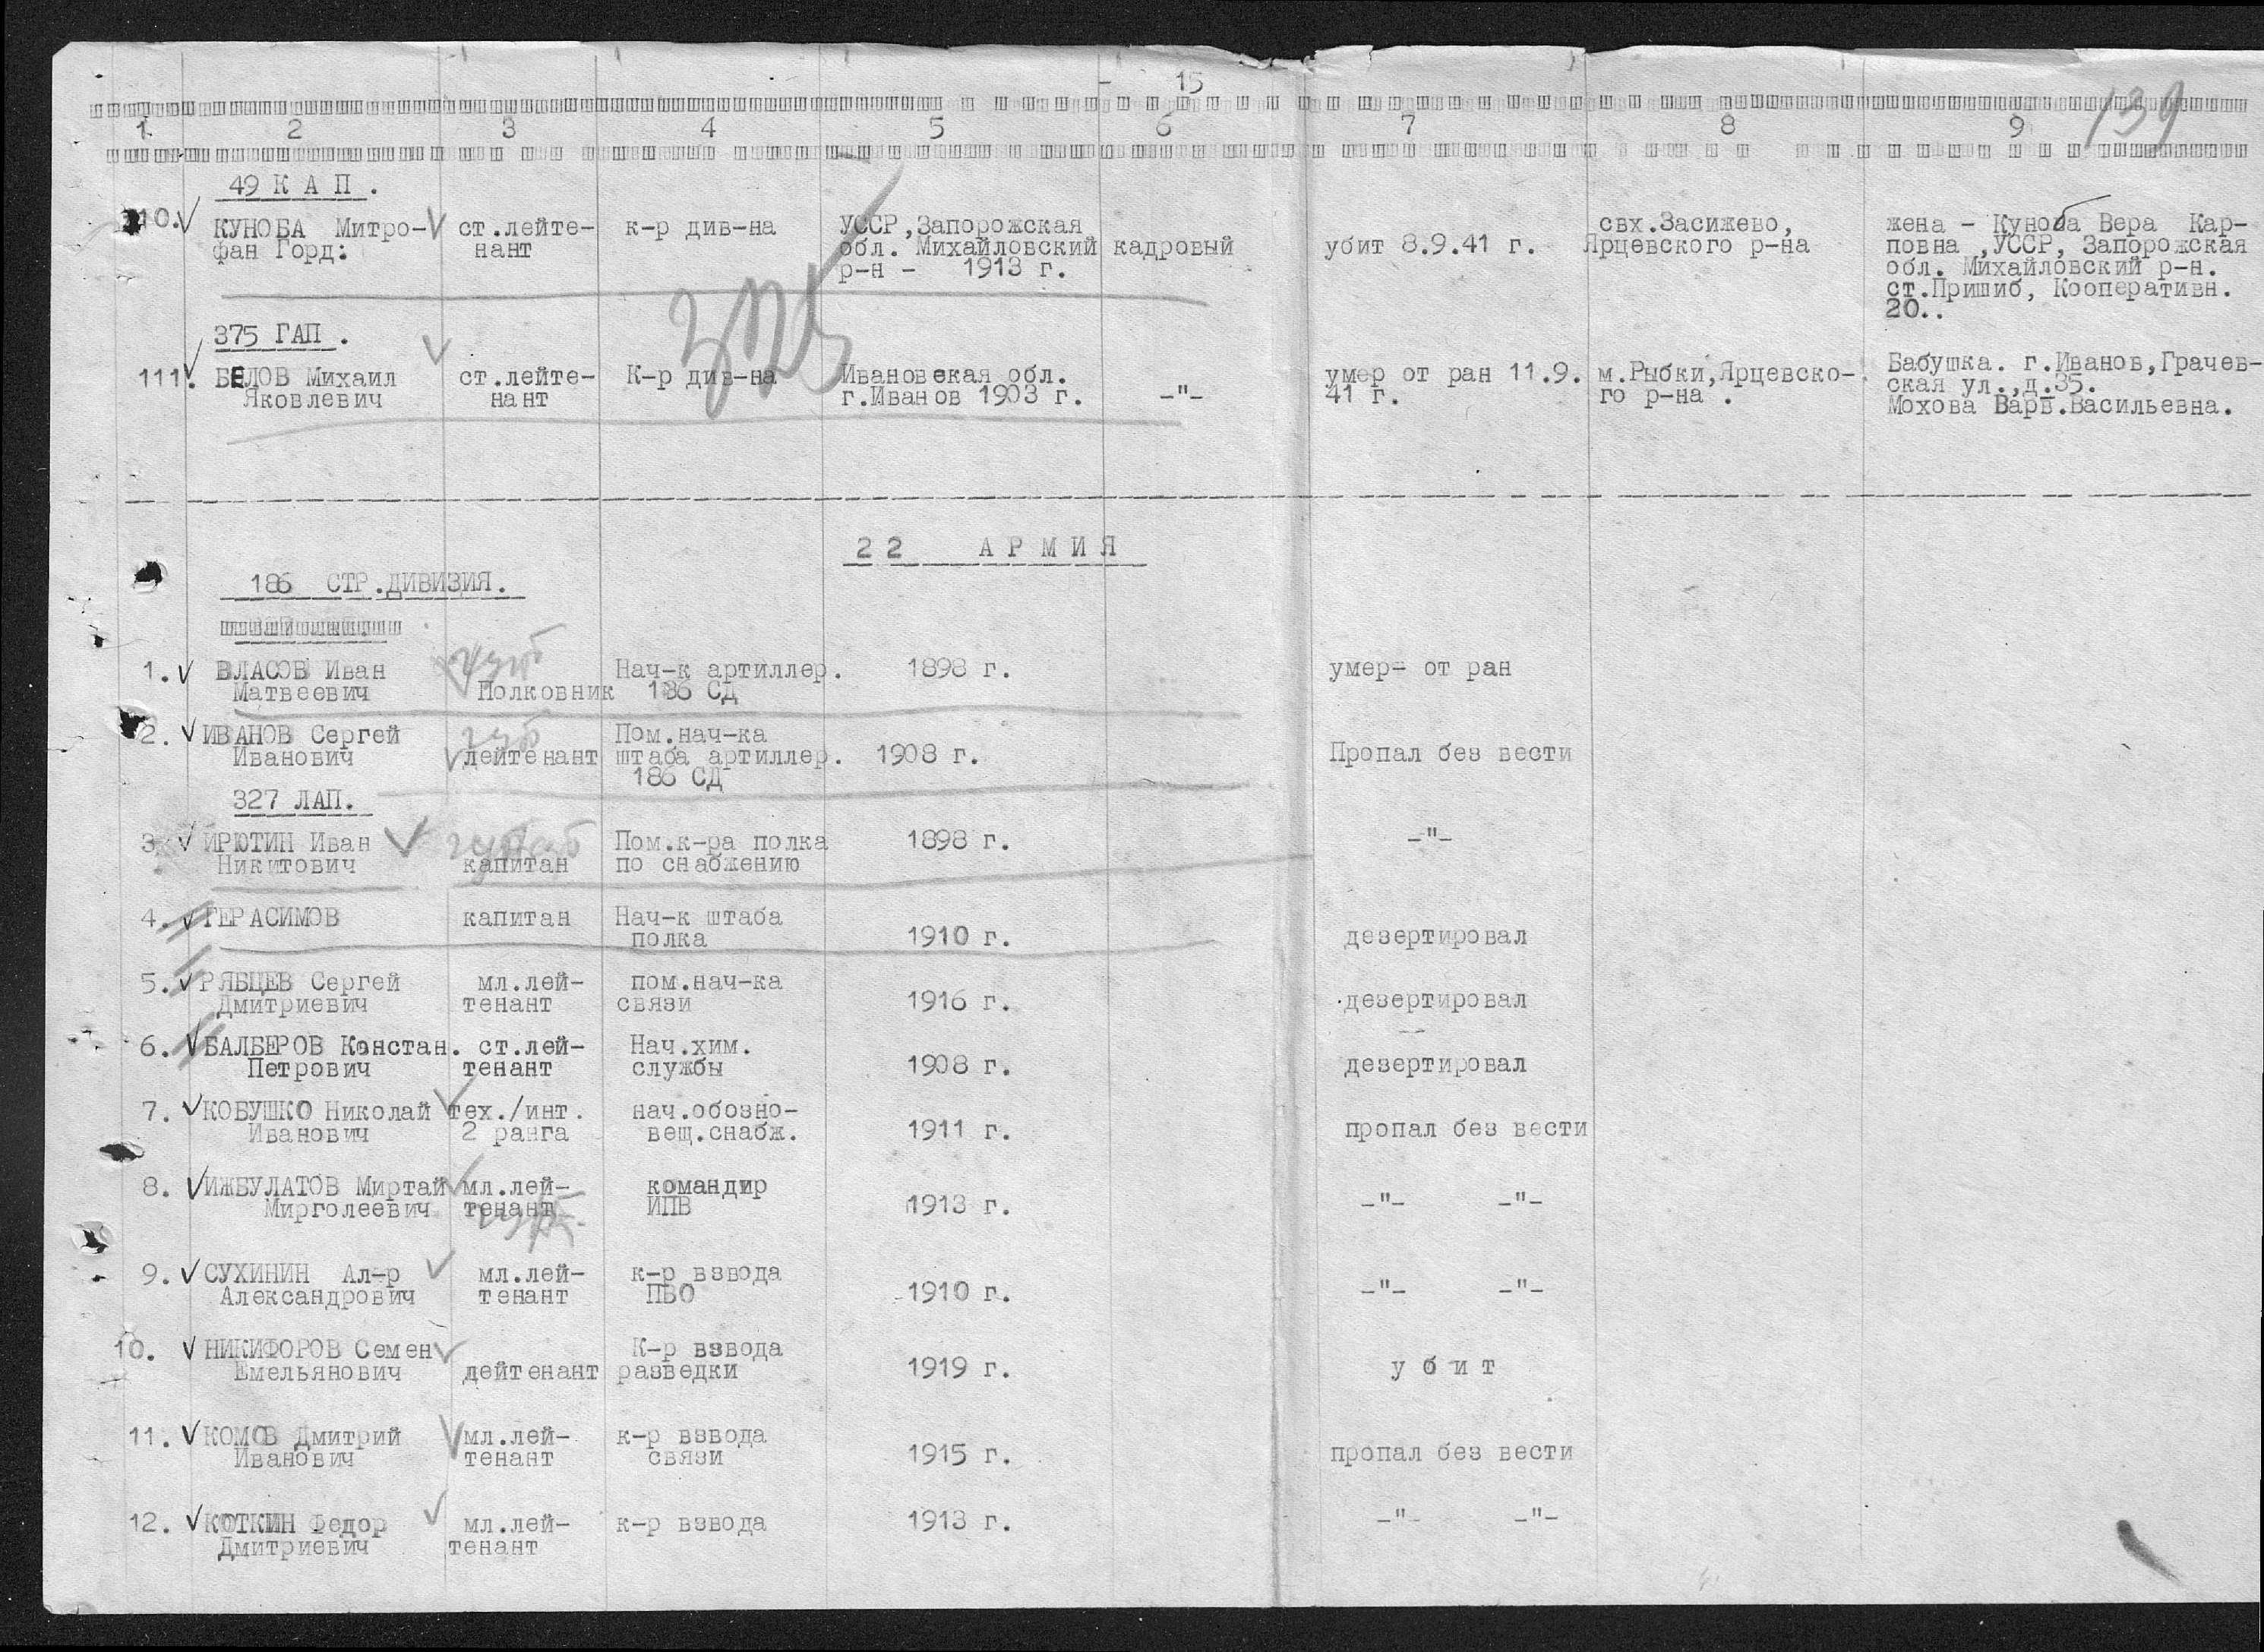 - 15
139
1 2 3 4 5 6 7 8 9
49 К А П .
110. КУНОБА Митро- ст.лейте- к-р див-на УССР,Запорожская свх.Засижево, жена - Куноба Вера Кар-
фан Горд: нант обл. Михайловский кадровый убит 8.9.41 г. Ярцевского р-на повна ,УССР, Запорожская
р-н - 1913 г. обл. Михайловский р-н.
ст.Пришиб, Кооперативн.
20..
375 ГАП .
111. БЕЛОВ Михаил ст.лейте- К-р див-на Ивановская обл. умер от ран 11.9. м.Рыбки,Ярцевско- Бабушка. г.Иванов,Грачев-
Яковлевич нант г.Иванов 1903 г. -"- 41 г. го р-на . ская ул.,д.35.
Мохова Варв.Васильевна.
22 АРМИЯ
186 СТР.ДИВИЗИЯ.
1. ВЛАСОВ Иван Нач-к артиллер. 1898 г. умер- от ран
Матвеевич Полковник 186 СД
2. ИВАНОВ Сергей Пом.нач-ка
Иванович дейтенант штаба артиллер. 1908 г. Пропал без вести
186 СД
327 ЛАП.
3. ИРЮТИН Иван Пом.к-ра полка 1898 г. -"-
Никитович капитан по снабжению
4. ГЕРАСИМОВ капитан Нач-к штаба
полка 1910 г. дезертировал
5. РЯБЦЕВ Сергей мл.лей- пом.нач-ка
Дмитриевич тенант связи 1916 г. дезертировал
6. БАЛБЕРОВ Констан. ст.лей- Нач.хим.
Петрович тенант службы 1908 г. дезертировал
7. КОБУШКО Николай тех./инт. нач.обозно-
Иванович 2 ранга вещ.снабж. 1911 г. пропал без вести
8. ИЖБУЛАТОВ Миртай мл.лей- командир
Мирголеевич тенант ИПВ 1913 г. -"- -"-
9. СУХИНИН Ал-р мл.лей- к-р взвода
Александрович тенант ПВО 1910 г. -"- -"-
10. НИКИФОРОВ Семен К-р взвода
Емельянович дейтенант разведки 1919 г. у б и т
11. КОМОВ Дмитрий мл.лей- к-р взвода
Иванович тенант связи 1915 г. пропал без вести
12. КОТКИН Федор мл.лей- к-р взвода 1913 г. -"- -"-
Дмитриевич тенант